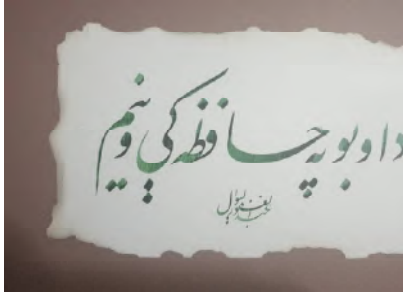 داوبو په حافظه کې وینم